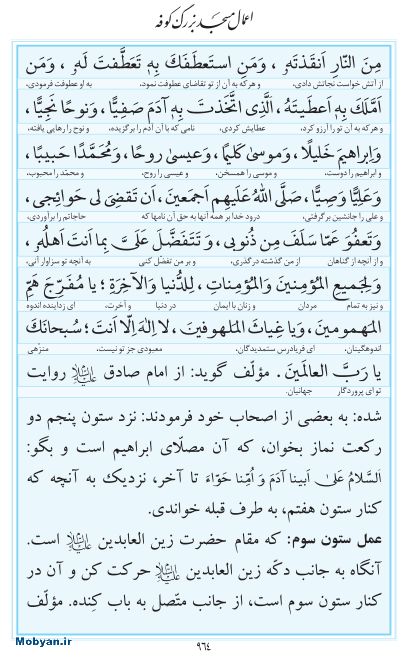 اعمال مسجد بزرگ کوفه
مِنَ النّارِ اَنقَذتَهُ، وَمَنِ استَعطَفَكَ بِهِ تَعَطَّفتَ لَهُ، وَمَن
از آتش خواست نجاتش دادی، و هر که به آن از تو تقاضای عطوفت نمود، به او عطوفت فرمودی،
اَمَّلَكَ بِهِ اَعطَيتَهُ، اَلَّذِى اتَّخَذتَ بِهِ آدَمَ صَفِيًّا، وَنوحًا نَجِيًّا،
و هر که به آن تو را آرزو کرد، عطایش کردی، نامی که با آن آدم را برگزیده، و نوح را رهایی یافته،
وَاِبراهيمَ خَليلًا، وَموسىٰ كَليمًا، وَعيسىٰ روحًا، وَمُحَمَّدًا حَبيبًا،
و ابراهیم را دوست، و موسی را همسخن، و عیسی را روح، و محمّد را محبوب،
وَعَلِيًّا وَصِيًّا، صَلَّى اللهُ عَلَيهِم اَجمَعينَ، اَن تَقضِىَ لى حَوائِجى،
و علی را جانشین برگرفتی، درود خدا بر همه آنها به حق آن نامها که حاجاتم را برآوردی،
وَتَعفُوَ عَمّا سَلَفَ مِن ذُنوبى، وَتَتَفَضَّلَ عَلَىَّ بِما اَنتَ اَهلُهُ،
و از آنچه از گناهان من گذشته در گذری، و بر من تفضّل کنی به آنچه تو سزاوار آنی،
وَلِجَميعِ المُؤمِنينَ وَالمُؤمِناتِ، لِلدُّنيا وَالآخِرَةِ؛ يا مُفَرِّجَ هَمِّ
و نیز به تمام مردان و زنان با ایمان در دنیا و آخرت، ای زداینده اندوه
المَهمومينَ، وَيا غِياثَ المَلهوفينَ، لا اِلٰهَ اِلّا اَنتَ؛ سُبحانَكَ
اندوهگینان، ای فریادرس ستمدیدگان، معبودی جز تو نیست، منزّهی
يا رَبَّ العالَمينَ. مؤلّف گوید: از امام صادق علیه‌السلام روایت
تو ای پروردگار جهانیان.
شده: به بعضی از اصحاب خود فرمودند: نزد ستون پنجم دو
رکعت نماز بخوان، که آن مصلّای ابراهیم است و بگو:
اَلسَّلامُ عَلىٰ اَبينا آدَمَ وَ اُمِّنا حَوّاءَ تا آخر، نزدیک به آنچه که
کنار ستون هفتم، به طرف قبله خواندی.
عمل ستون سوم: که مقام حضرت زین العابدین علیه‌السلام است.
آنگاه به جانب دکّه زین العابدین علیه‌السلام حرکت کن و آن در
کنار ستون سوم است، از جانب متّصل به باب کِنده. مؤلّف
Mobyan.ir
٩٦٤